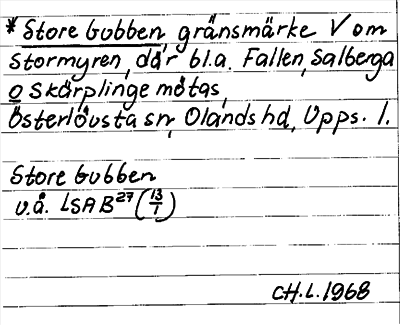 *Store Gubben, gränsmärke V om
Stormyren, där bl.a. Fallen, Salberga
o Skärplinge mötas,
Österlövsta sn, Olands hd, Upps. l.
Store Gubben
u.å. LSA B27 (13/1)
CH.L. 1968